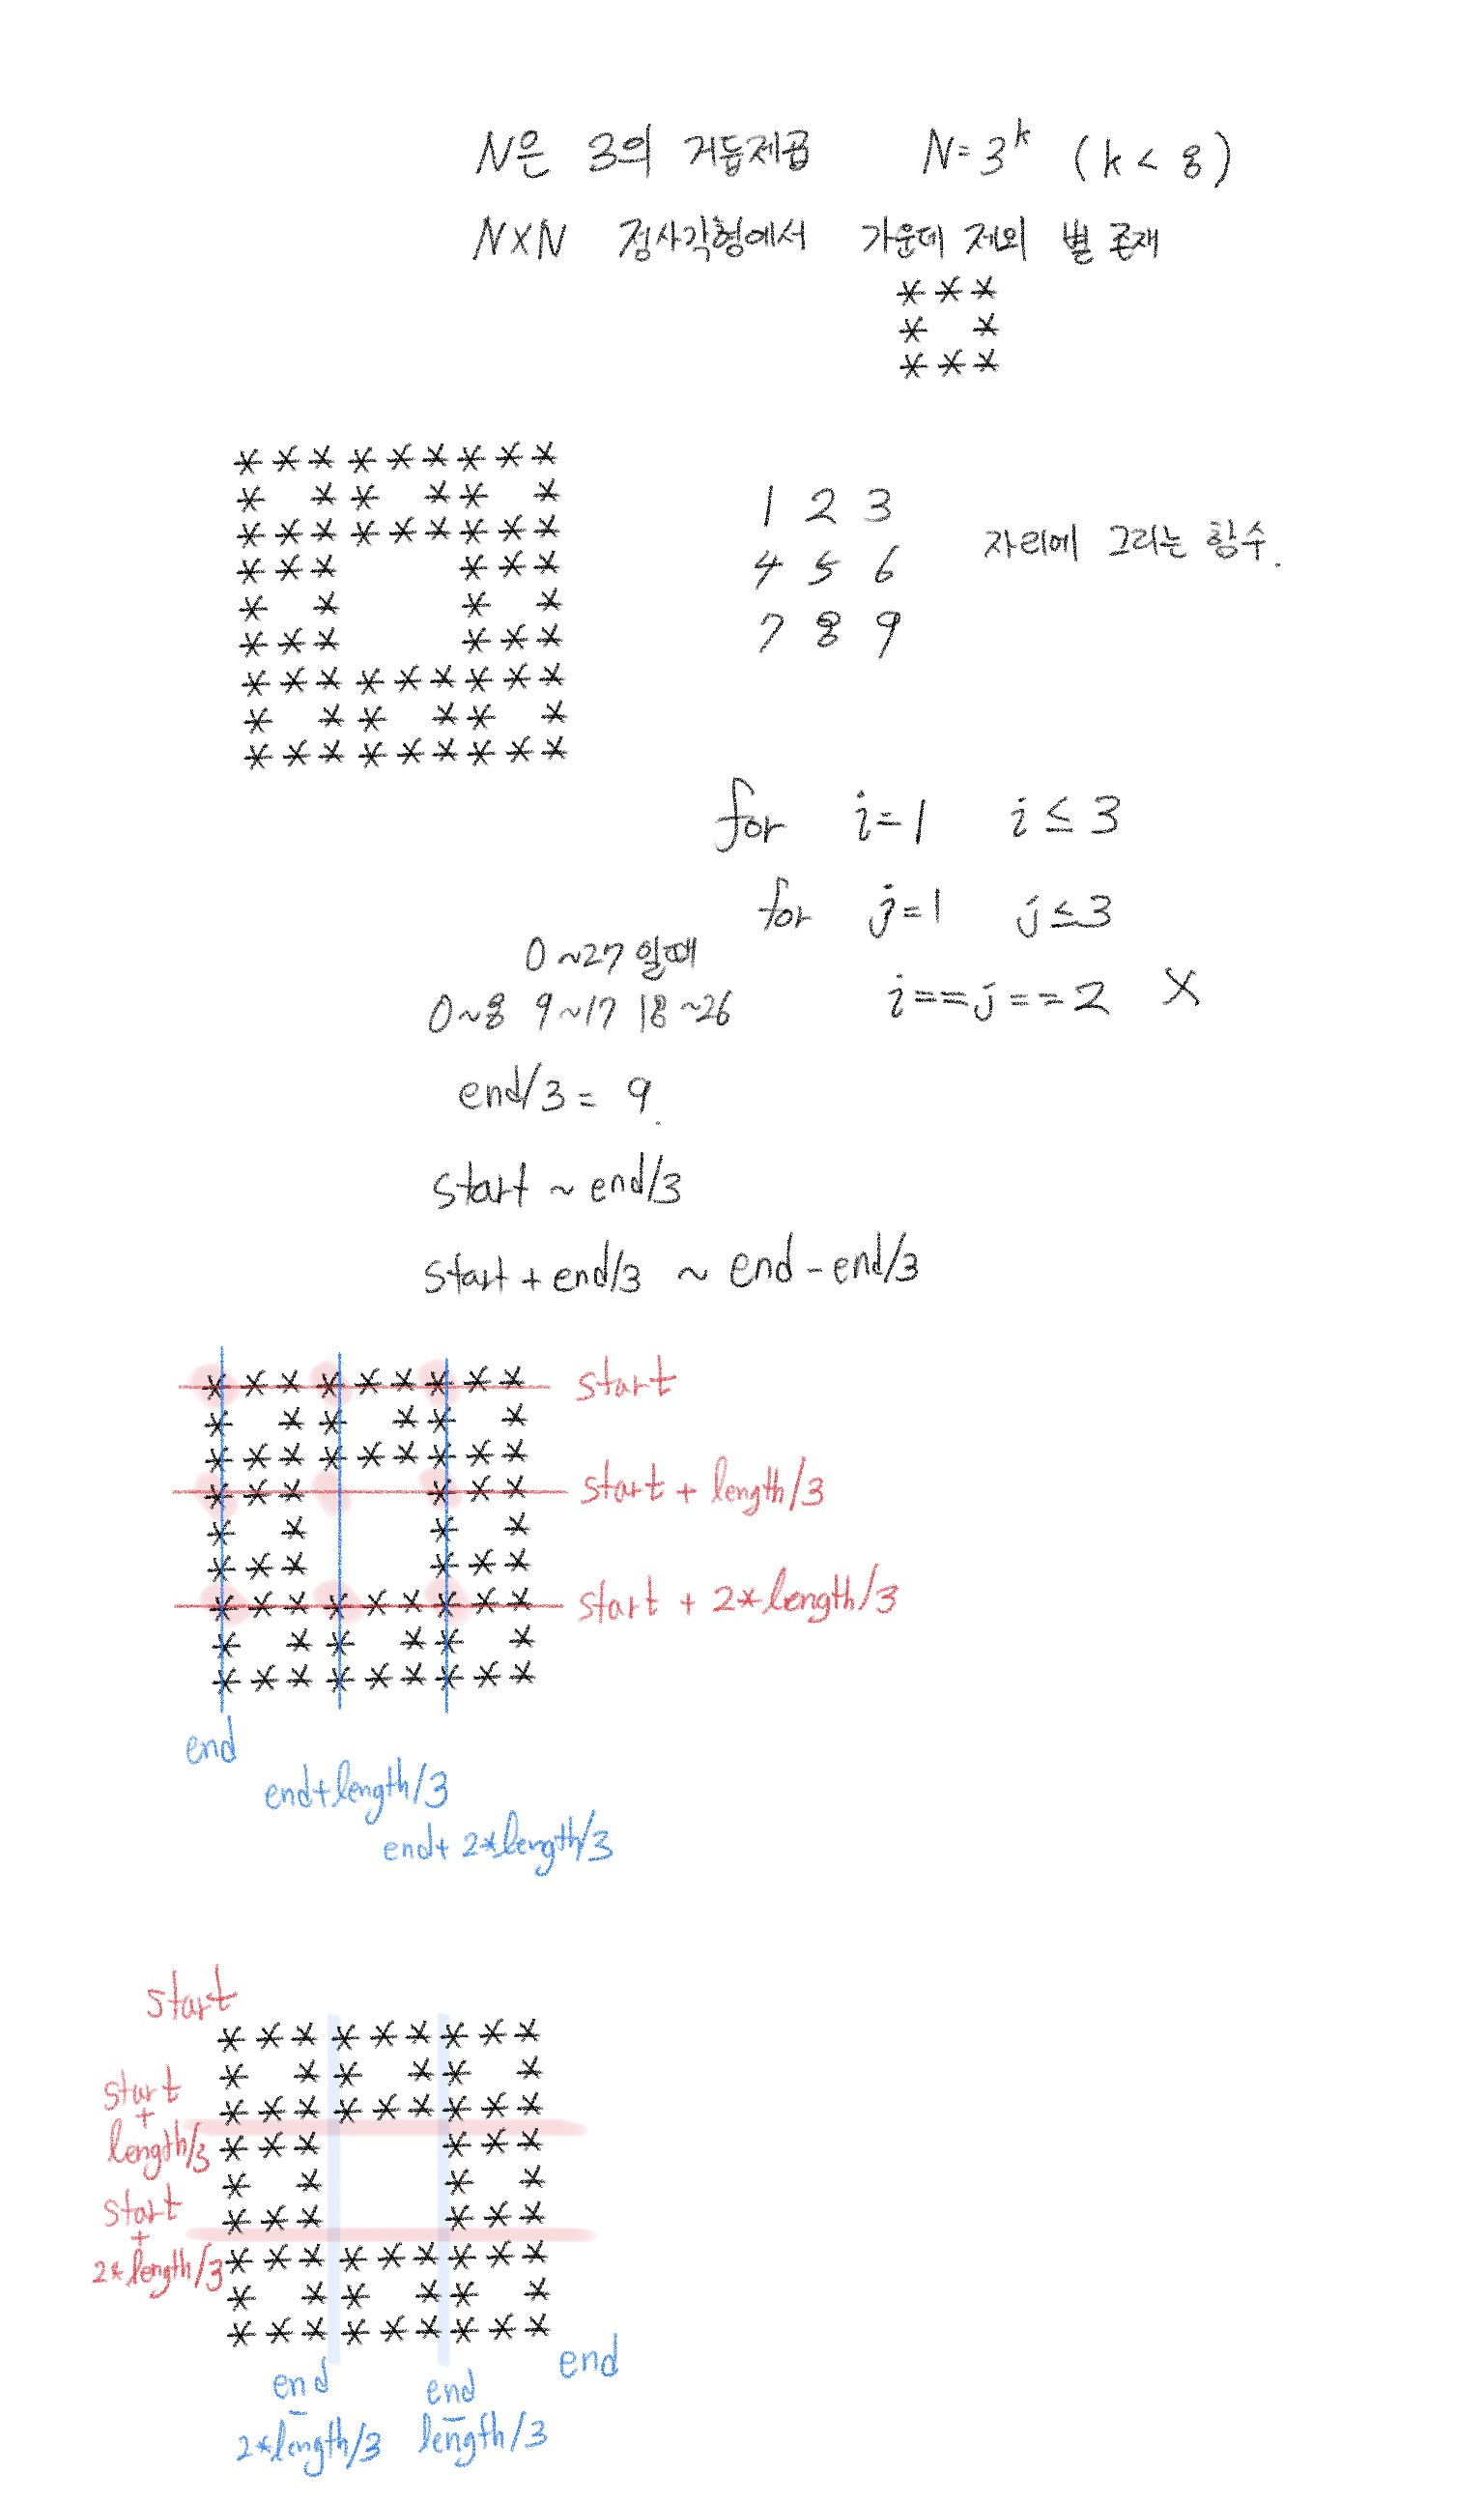 N은 3의 거듭제곱 N=3^k (k < 8)
N×N 정사각형에서 가운데 제외 별 존재
* * *
*   *
* * *
* * * * * * * * *
*   * *   * *   *
* * * * * * * * *
* * *       * * *
*   *       *   *
* * *       * * *
* * * * * * * * *
*   * *   * *   *
* * * * * * * * *
1 2 3
4 5 6
7 8 9
자리에 그리는 함수.
for i=1 i≤3
for j=1 j≤3
i==j==2 X
0~27일때
0~8 9~17 18~26
end/3 = 9.
start ~ end/3
start + end/3 ~ end - end/3
* * * * * * * * * start
*   * *   * *   *
* * * * * * * * *
* * *       * * * start + length/3
*   *       *   *
* * *       * * *
* * * * * * * * * start + 2*length/3
*   * *   * *   *
* * * * * * * * *
end
end+length/3
end+ 2*length/3
start
* * * * * * * * *
start
*   * *   * *   *
+
* * * * * * * * *
length/3
* * *       * * *
*   *       *   *
start
* * *       * * *
+
2*length/3
* * * * * * * * *
*   * *   * *   *
* * * * * * * * *
end
end
-
2*length/3
end
-
length/3